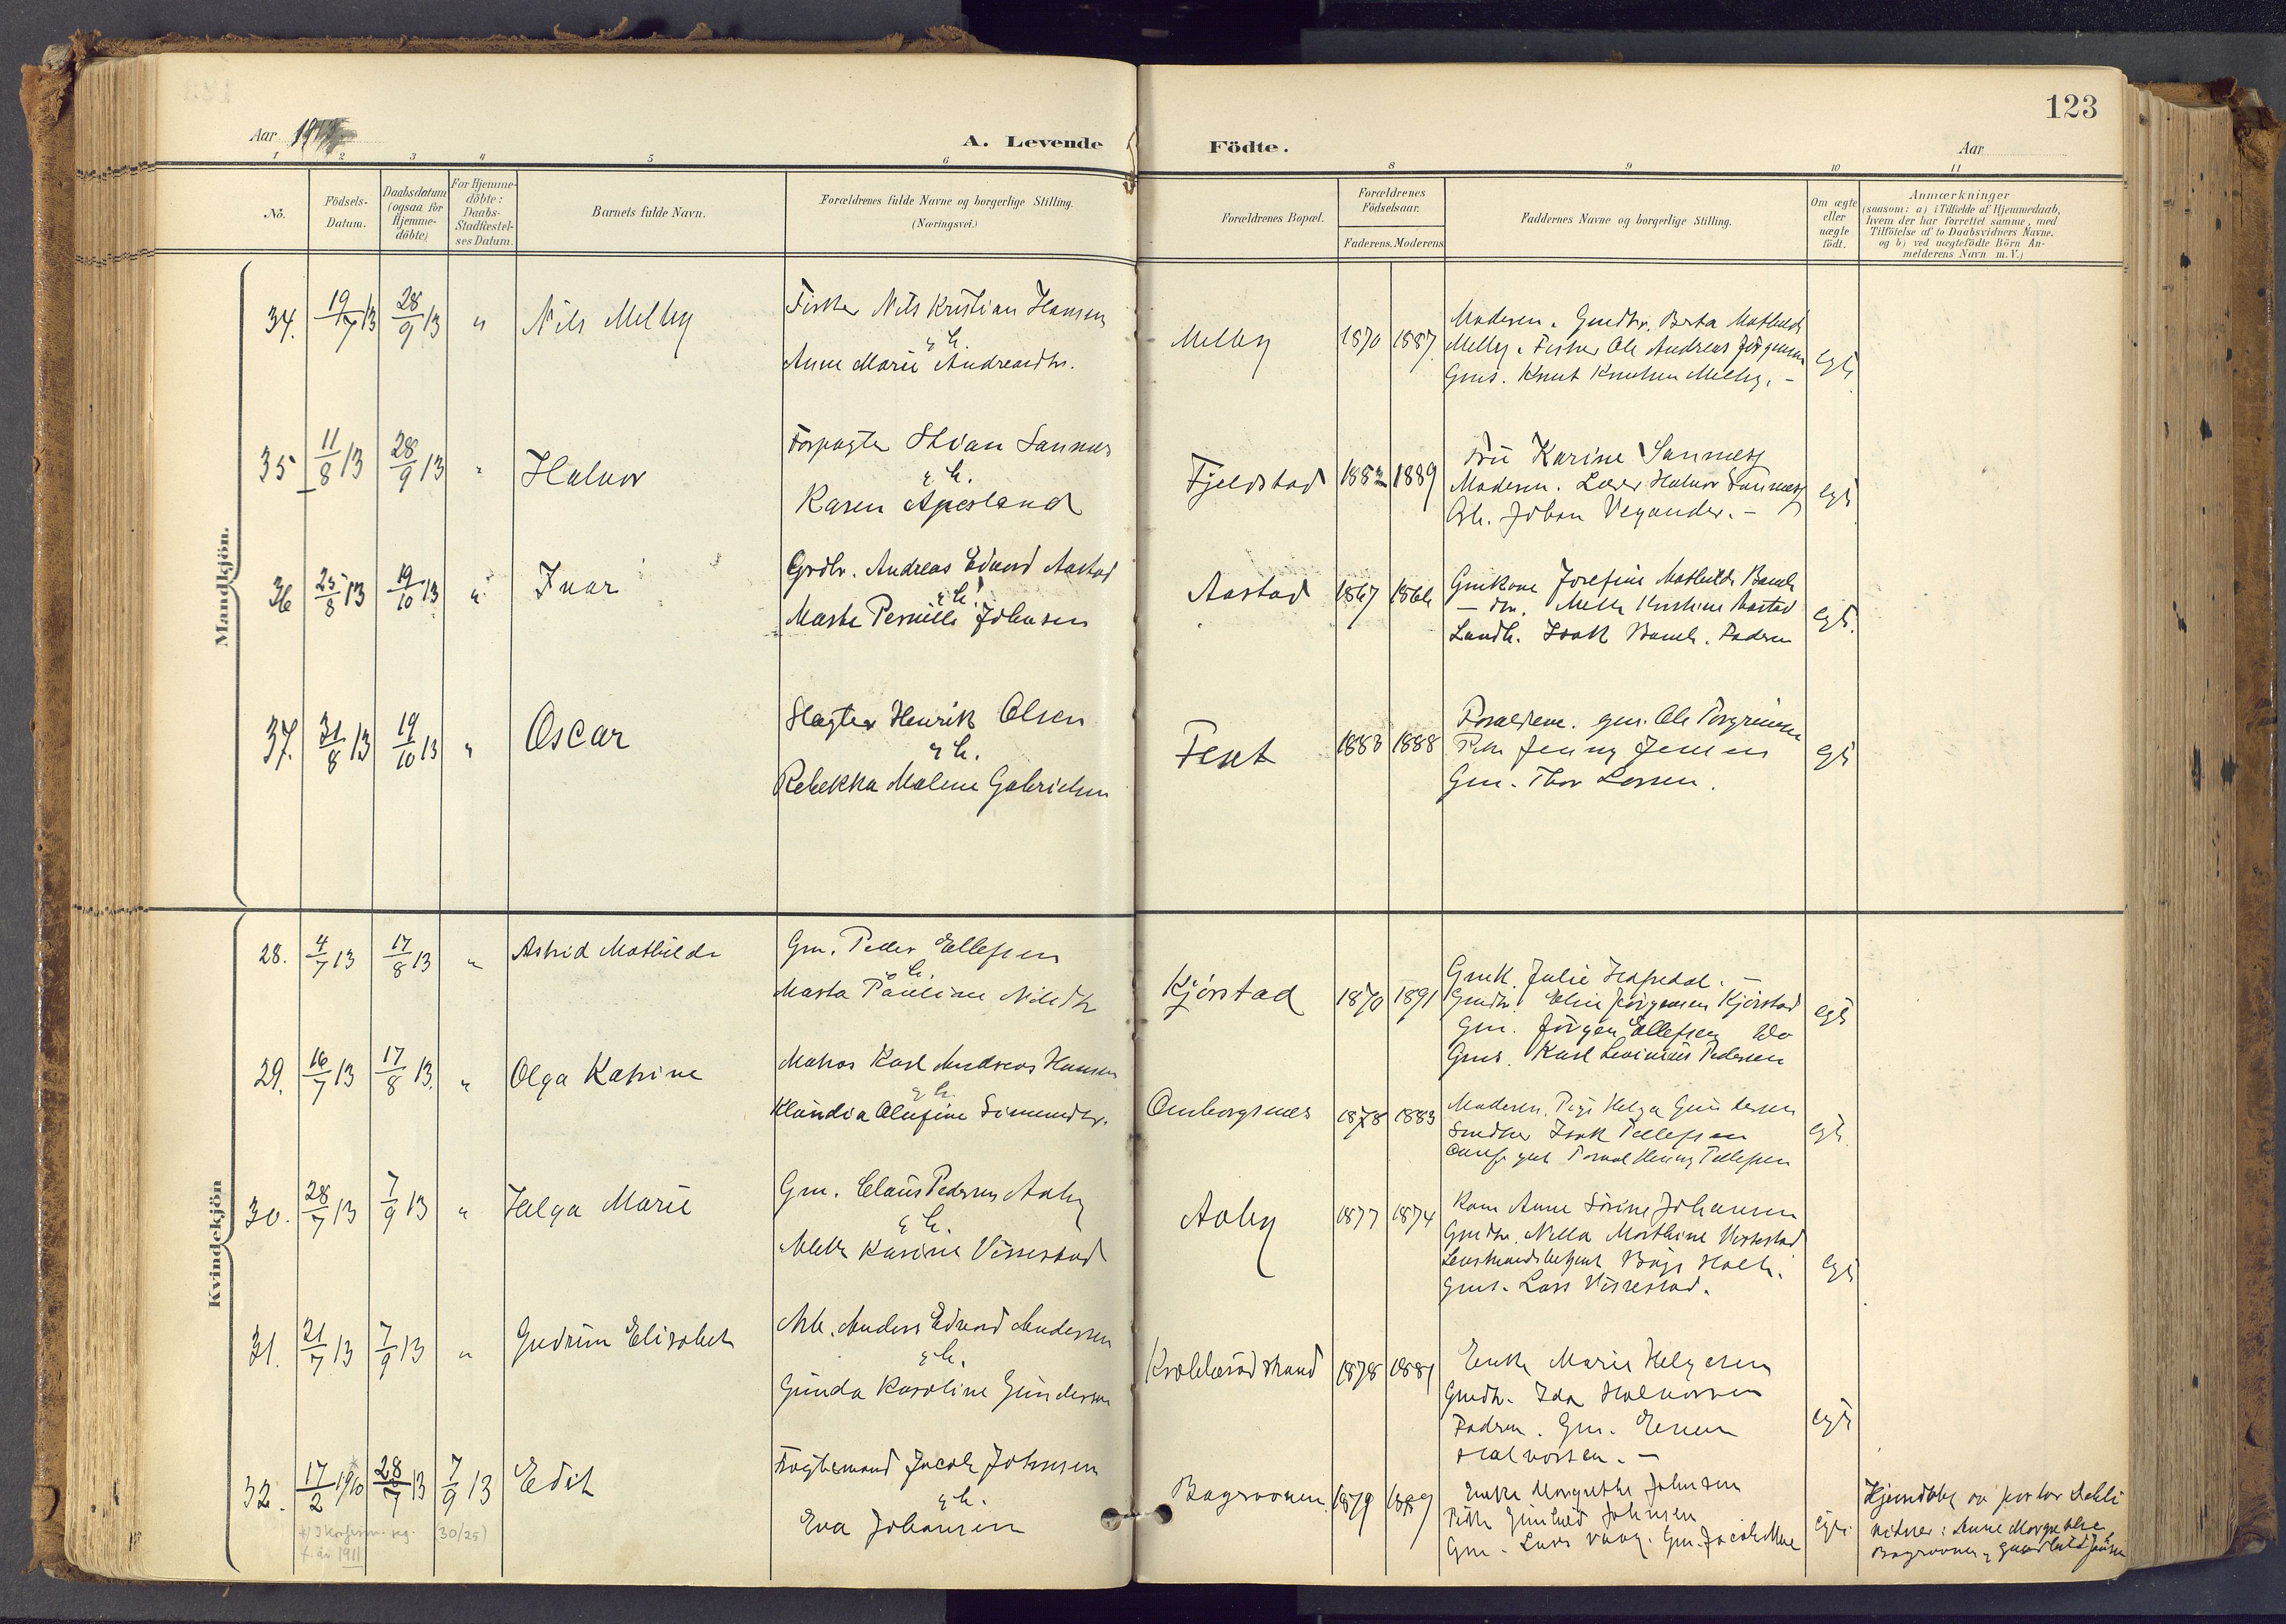 123
Aar 1913
A. Levende Födte.
Aar
1 2 3 4 5 6 8 9 10 11
No.
Födsels-
Datum.
Daabsdatum
(ogsaa for
Hjemme-
döbte)
For Hjemme-
döbte:
Daabs-
Stadfæstel-
ses Datum.
Barnets fulde Navn.
Forældrenes fulde Navne og borgerlige Stilling.
(Næringsvei.)
Forældrenes Bopæl.
Forældrenes
Födselsaar.
Faderens. Moderens.
Faddernes Navne og borgerlige Stilling.
Om ægte
eller
uægte
födt.
Anmærkninger
(saasom: a) i Tilfælde af Hjemmedaab,
hvem der har forrettet samme, med
Tilföielse af to Daabsvidners Navne.
og b) ved uægtefödte Börn An-
melderens Navn m. V.)
Mandkjön.
34. 19/7 13 28/9 13 " Nils Melby
Fisker Nils Kristian Hansen
& h.
Anne Marie Andreasdtr.
Melby 1870 1887
Moderen. Gmdtr. Berta Mathilde
Melby. Fisker Ole Andreas Jörgensen
Gms. Knut Knutsen Melby. -
egte
35 11/8 13 28/9 13 " Halvor
Forpagter Stian Sannes
& h.
Karen Apesland
Fjeldstad 1882 1889
Fru Karine Sannes
Moderen. Lærer Halvor Sannes
Arb. Johan Vegander. -
egte
36 25/8 13 19/10 13 " Ivar
Grdbr. Andreas Edvard Aastad
& h.
Marthe Pernille Johnsen
Aastad 1867 1866
Gmkone Josefine Mathilde Bamle
- Mette Kristine Aastad
Landh. Isak Bamle. Faderen
egte.
37. 31/8 13 19/10 13 " Oscar
Slagter Henrik Olsen
& h.
Rebekka Malene Gabrielsen
Fent 1883 1888
Forældrene. gm. Ole Torgrimsen
Pike Jenny Jensen
Gm. Thor Larsen.
egte
Kvindekjön
28. 4/7 13 17/8 13 " Astrid Mathilde
Gm. Peder Ellefsen
& h.
Marta Pauline Nilsdtr
Kjörstad 1870 1891
Gmk. Julie Hafredal. -
Gmdtr. Elise Jörgensen Kjörstad
Gm. Jörgen Ellefsen Do
Gms. Karl Levinius Pedersen
egte
29. 16/7 13 17/8 13. " Olga Katrine
Matros Karl Andreas Hansen
& h.
Klaudia Olufine Simensdtr.
Omborgsnes 1878 1883
Moderen. Pige Helga Gundersen
Isak Tellefsen
Henry Tellefsen
egte
30. 28/7 13 7/9 13 " Helga Marie
Gm. Claus Pedersen Aaby
& h.
Mette Karine Vissestad
Aaby 1877 1874
Kone Anne Sörine Johansen
Gmdtr. Nella Marthine Vissestad
Lensmandsbetjent Börge Holte.
Gms. Lars Vissestad.
egte
31. 21/7 13 7/9 13 " Gudrun Elisabet
Arb. Anders Edvard Andersen
& h.
Gunda Karoline Gundersen
Kvolderöd strand 1878 1881
Enke Marie Helgesen
Gmdtr. Ida Halvorsen
Faderen. Gm. Even
Halvorsen. -
egte
32. 17/2 1910 28/7 13 7/9 13 Edit
Fragtemand Jacob Johnsen
& h.
Eva Johansen
Bagrovnen. 1879 1889
Enke Margrethe Johnsen
Pike Gunhild Johnsen
Gm. Lars Vaag. Gm. Jacob Moe
egte.
Hjemdöbt av pastor Dehli
vidner: Anne Margrethe
Bagrovnen, Gunhild Johnsen
*) I Konfirm. reg. (30/25)
f. år 1911